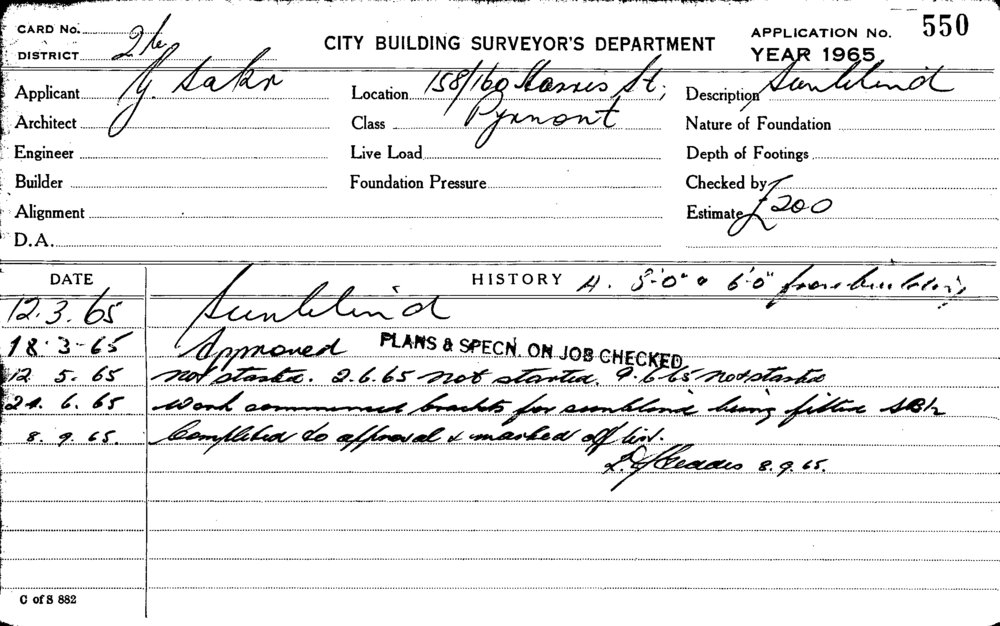 CARD No.
550
APPLICATION No.
CITY BUILDING SURVEYOR'S DEPARTMENT
DISTRICT
YEAR 1965
Applicant Y. Sakr
Location 158/160 Harris St;
Pyrmont
Description Sunblind
Architect
Class
Nature of Foundation
Engineer
Live Load
Depth of Footings
Builder
Foundation Pressure
Checked by
Alignment
Estimate £200
D.A.
DATE
HISTORY
12.3.65 Sunblind
18.3.65 Approved PLANS & SPECN. ON JOB CHECKED
12.5.65 not started. 2.6.65 not started. 9.6.65 not started
24.6.65 Work commenced brackets for sunblind being fitted
8.9.65. Completed to approval & marked off list.
8.9.65.
C of S 882